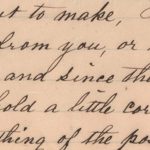 t to make,
from you, or
and since the
hold a little cor
thing of the po